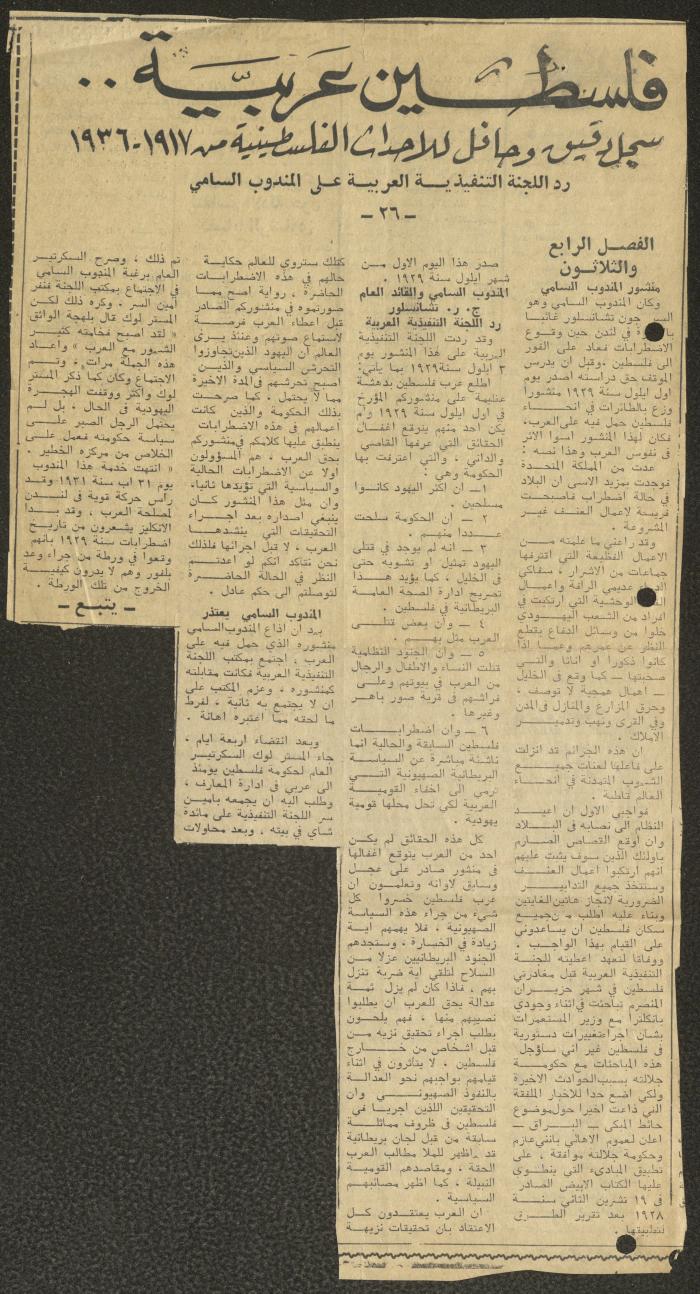 فلسطين عربية ..
سجل دقيق وحافل للاحداث الفلسطينية من ١٩١٧-١٩٣٦
رد اللجنة التنفيذية العربية على المندوب السامي
- ٢٦ -
الفصل الرابع
والثلاثون
منشور المندوب السامي
وكان المندوب السامي وهو
السر جون تشانسلور غائبا
في لندن حين وقوع
الاضطرابات فعاد على الفور
الى فلسطين . وقبل ان يدرس
الموقف حق دراسته اصدر يوم
اول ايلول سنة ١٩٢٩ منشورا
وزع بالطائرات في انحاء
فلسطين حمل فيه على العرب .
فكان لهذا المنشور اسوا الاثر
في نفوس العرب وهذا نصه :
عدت من المملكة المتحدة
فوجدت بمزيد الاسى ان البلاد
في حالة اضطراب فاصبحت
فريسة لاعمال العنف غير
المشروعة .
وقد راعني ما علمته من
الاعمال الفظيعة التي اقترفها
جماعات من الاشرار ، سفاكي
عديمي الرافة واعمال
الوحشية التي ارتكبت في
افراد من الشعب اليهودي
خلوا من وسائل الدفاع بقطع
النظر عن عمرهم وعما اذا
كانوا ذكورا او اناثا والتي
صحبتها - كما وقع في الخليل
- اعمال همجية لا توصف ،
وحرق المزارع والمنازل في المدن
وفي القرى ونهب وتدمير
الاملاك .
ان هذه الجرائم قد انزلت
على فاعلها لعنات جميع
الشعوب المتمدنة في انحاء
العالم قاطبة
فواجبي الاول ان اعيد
النظام الى نصابه في البلاد
وان اوقع القصاص الصارم
باولئك الذين سوف يثبت عليهم
انهم ارتكبوا اعمال العنف
وستتخذ جميع التدابير
الضرورية لانجاز هاتين الغايتين
وبناء عليه اطلب من جميع
سكان فلسطين ان يساعدوني
على القيام بهذا الواجب .
ووفاقا لتعهد اعطيته للجنة
التنفيذية العربية قبل مغادرتي
فلسطين في شهر حزيران
المنصرم تباحثت في اثناء وجودي
بانكلترا مع وزير المستعمرات
بشان اجراء تغييرات دستورية
في فلسطين غير اني ساؤجل
هذه المباحثات مع حكومة
جلالته بسبب الحوادث الاخيرة
ولكي اضع حدا للاخبار الملفقة
التي ذاعت اخيرا حول موضوع
حائط المبكى - البراق -
اعلن لعموم الاهالي بانني عازم
وحكومة جلالته موافقة ، على
تطبيق المبادىء التي ينطوي
عليها الكتاب الابيض الصادر
في ١٩ تشرين الثاني سنة
١٩٢٨ بعد تقرير الطرق
لتطبيقها .
صدر هذا اليوم الاول من
شهر ايلول سنة ١٩٢٩ .
المندوب السامي والقائد العام
ج . ر . تشانسلور
رد اللجنة التنفيذية العربية
وقد ردت اللجنة التنفيذية
العربية على هذا المنشور يوم
٣ ايلول سنة ١٩٢٩ بما يأتي:
اطلع عرب فلسطين بدهشة
عظيمة على منشوركم المؤرخ
في اول ايلول سنة ١٩٢٩ ولم
يكن احد منهم يتوقع اغفال
الحقائق التي عرفها القاصي
والداني ، والتي اعترفت بها
الحكومة وهي :
١ - ان اكثر اليهود كانوا
مسلحين .
٢ - ان الحكومة سلحت
عددا منهم .
٣ - انه لم يوجد في قتلى
اليهود تمثيل او تشويه حتى
في الخليل ، كما يؤيد هذا
تصريح ادارة الصحة العامة
البريطانية في فلسطين .
٤ - وان بعض قتلى
العرب مثل بهم .
٥ - وان الجنود النظامية
قتلت النساء والاطفال والرجال
من العرب في بيوتهم وعلى
فراشهم في قرية صور باهر
وغيرها .
٦ - وان اضطرابات
فلسطين السابقة والحالية انما
ناشئة مباشرة عن السياسة
البريطانية الصهيونية التي
ترمي الى اخفاء القومية
العربية لكي تحل محلها قومية
يهودية .
كل هذه الحقائق لم يكن
احد من العرب يتوقع اغفالها
في منشور صادر على عجل
وسابق لاوانه وتعلمون ان
عرب فلسطين خسروا كل
شيء من جراء هذه السياسة
الصهيونية ، فلا يهمهم اية
زيادة في الخسارة . وستجدهم
الجنود البريطانيين عزلا من
السلاح لتلقي اية ضربة تنزل
بهم ، فاذا كان لم يزل ثمة
عدالة يحق للعرب ان يطلبوا
نصيبهم منها ، فهم يلحون
بطلب اجراء تحقيق نزيه من
قبل اشخاص من خارج
فلسطين . لا يتأثرون في اثناء
قيامهم بواجبهم نحو العدالة
بالنفوذ الصهيوني وان
التحقيقين اللذين اجريا في
فلسطين في ظروف مماثلة
سابقة من قبل لجان بريطانية
قد اظهر للملا مطالب العرب
الحقة ، ومقاصدهم القومية
النبيلة ، كما اظهر مصائبهم
السياسية .
ان العرب يعتقدون كل
الاعتقاد بان تحقيقات نزيهة
كتلك ستروي للعالم حكاية
حالهم في هذه الاضطرابات
الحاضرة ، رواية اصح مما
صورتموه في منشوركم الصادر
قبل اعطاء العرب فرصة
لاستماع صوتهم وعندئذ يرى
العالم ان اليهود الذين تجاوزوا
التحرش السياسي والذين
اصبح تحرشهم في المدة الاخيرة
مما لا يحتمل . كما صرحت
بذلك الحكومة والذين كانت
اعمالهم في هذه الاضطرابات
ينطبق عليها كلامكم في منشوركم
بحق العرب ، هم المسؤولون
اولا عن الاضطرابات الحالية
والسياسية التي تؤيدها ثانيا.
وان مثل هذا المنشور كان
ينبغي اصداره بعد اجراء
التحقيقات التي ينشدها
العرب ، لا قبل اجرائها فلذلك
نحن نتأكد انكم لو اعدتم
النظر في الحالة الحاضرة
لتوصلتم الى حكم عادل .
المندوب السامي يعتذر
بيد ان اذاع المندوب السامي
منشوره الذي حمل فيه على
العرب ، اجتمع بمكتب اللجنة
التنفيذية العربية فكانت مقابلته
كمنشوره ، وعزم المكتب على
ان لا يجتمع به ثانية ، لفرط
ما لحقه مما اعتبره اهانة .
وبعد انقضاء اربعة ايام ،
جاء المستر لوك السكرتير
العام لحكومة فلسطين يومئذ
الى عربي في ادارة المعارف ،
وطلب اليه ان يجمعه بامين
سر اللجنة التنفيذية على مائدة
شاي في بيته ، وبعد محاولات
تم ذلك ، وصرح السكرتير
العام برغبة المندوب السامي
في الاجتماع بمكتب اللجنة فنفر
امين السر . وكره ذلك لكن
المستر لوك قال بلهجة الواثق
« لقد اصبح فخامته كثير
الشعور مع العرب » واعاد
هذه الجملة مرات . وتم
الاجتماع وكان كما ذكر المستر
لوك واكثر ووقفت الهجرة
اليهودية في الحال . بل لم
يحتمل الرجل الصبر على
سياسة حكومته فعمل على
الخلاص من مركزه الخطير .
« انتهت خدمة هذا المندوب
يوم ٣١ اب سنة ١٩٣١ وقد
رأس حركة قوية في لندن
لمصلحة العرب ، وقد بدا
الانكليز يشعرون من تاريخ
اضطرابات سنة ١٩٢٩ بانهم
وقعوا في ورطة من جراء وعد
بلفور وهم لا يدرون كيفية
الخروج من تلك الورطة .
- يتبع -